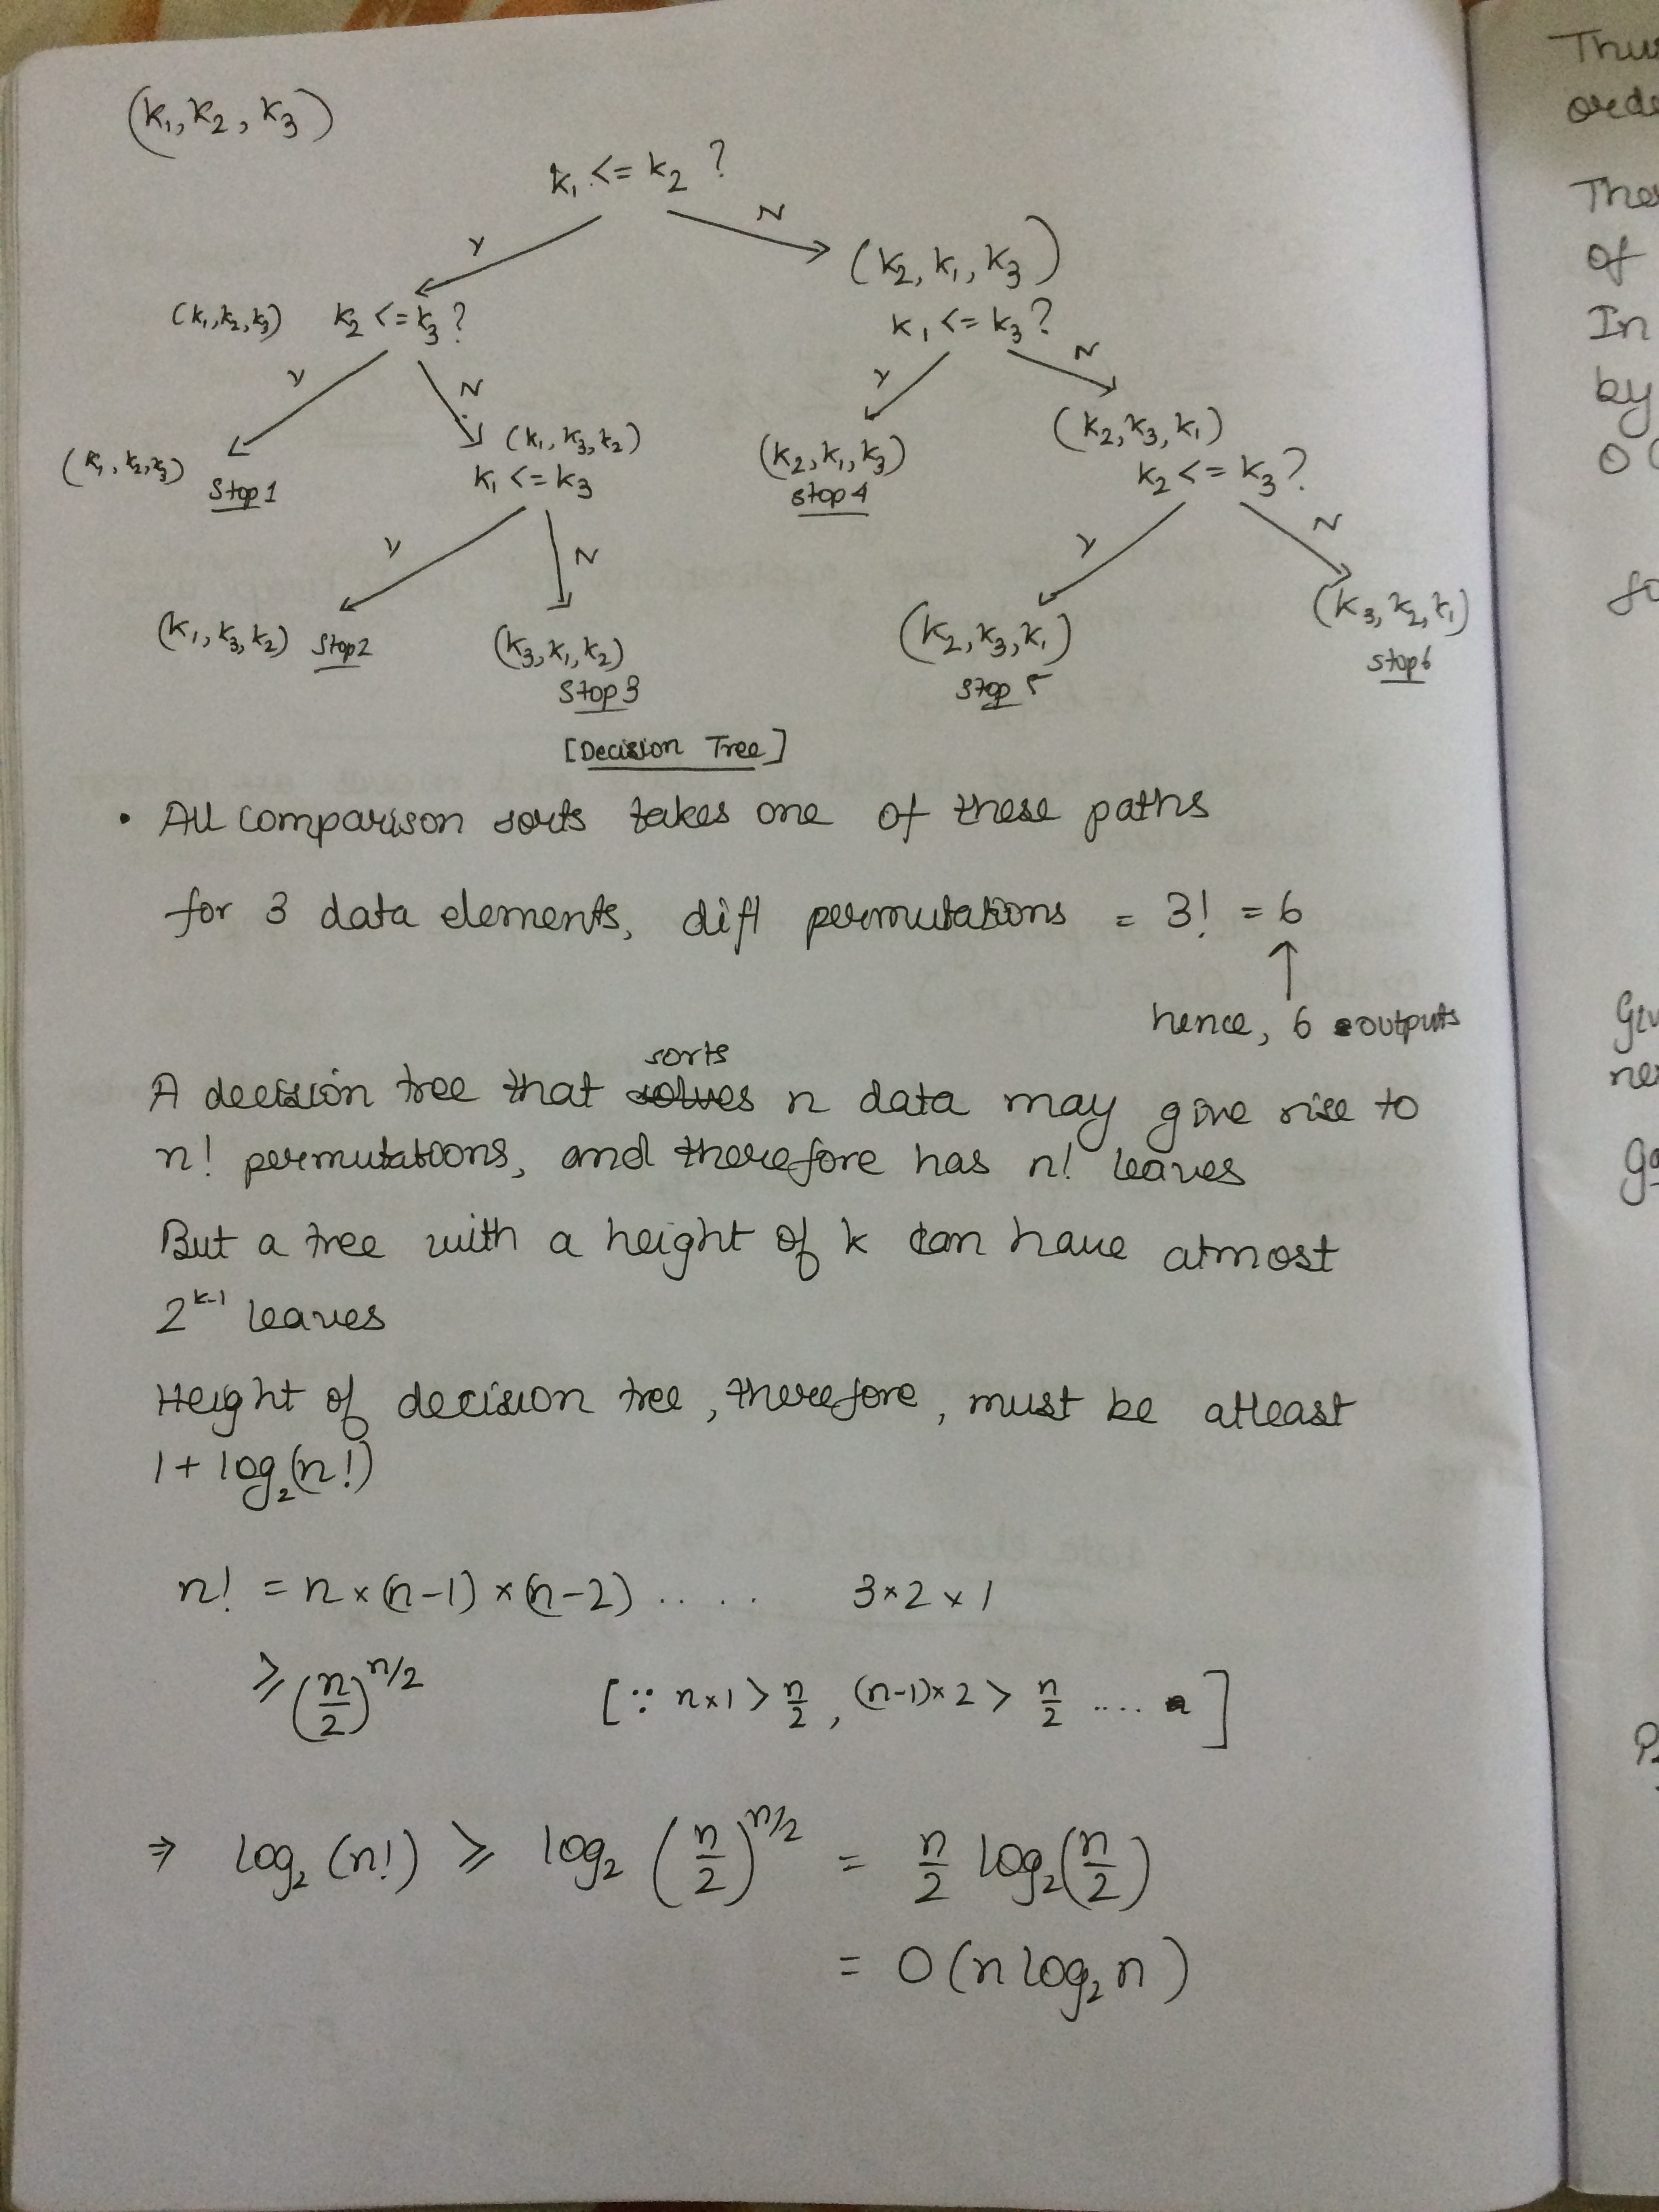 (k₁, k₂, k₃)
k₁ <= k₂ ?
Y N
(k₂, k₁, k₃)
(k₁, k₂, k₃) k₂ <= k₃ ?
k₁ <= k₃ ?
Y N Y N
(k₁, k₂, k₃) Stop 1
(k₁, k₃, k₂)
k₁ <= k₃
(k₂, k₁, k₃)
Stop 4
(k₂, k₃, k₁)
k₂ <= k₃ ?
Y N Y N
(k₁, k₃, k₂) Stop 2
(k₃, k₁, k₂)
Stop 3
(k₂, k₃, k₁)
Stop 5
(k₃, k₂, k₁)
Stop 6
[Decision Tree]
• All comparison sorts takes one of these paths
for 3 data elements, diff permutations = 3! = 6
↑
hence, 6 outputs
sorts
A decision tree that solves n data may give rise to
n! permutations, and therefore has n! leaves
But a tree with a height of k can have atmost
2ᵏ⁻¹ leaves
Height of decision tree, therefore, must be atleast
1 + log₂(n!)
n! = n × (n-1) × (n-2) ..... 3 × 2 × 1
≥ (n/2)^n/2 [∵ n×1 > n/2, (n-1)×2 > n/2 .... ]
⇒ log₂ (n!) ≥ log₂ (n/2)^n/2 = n/2 log₂(n/2)
= O(n log₂ n)
of
In
by